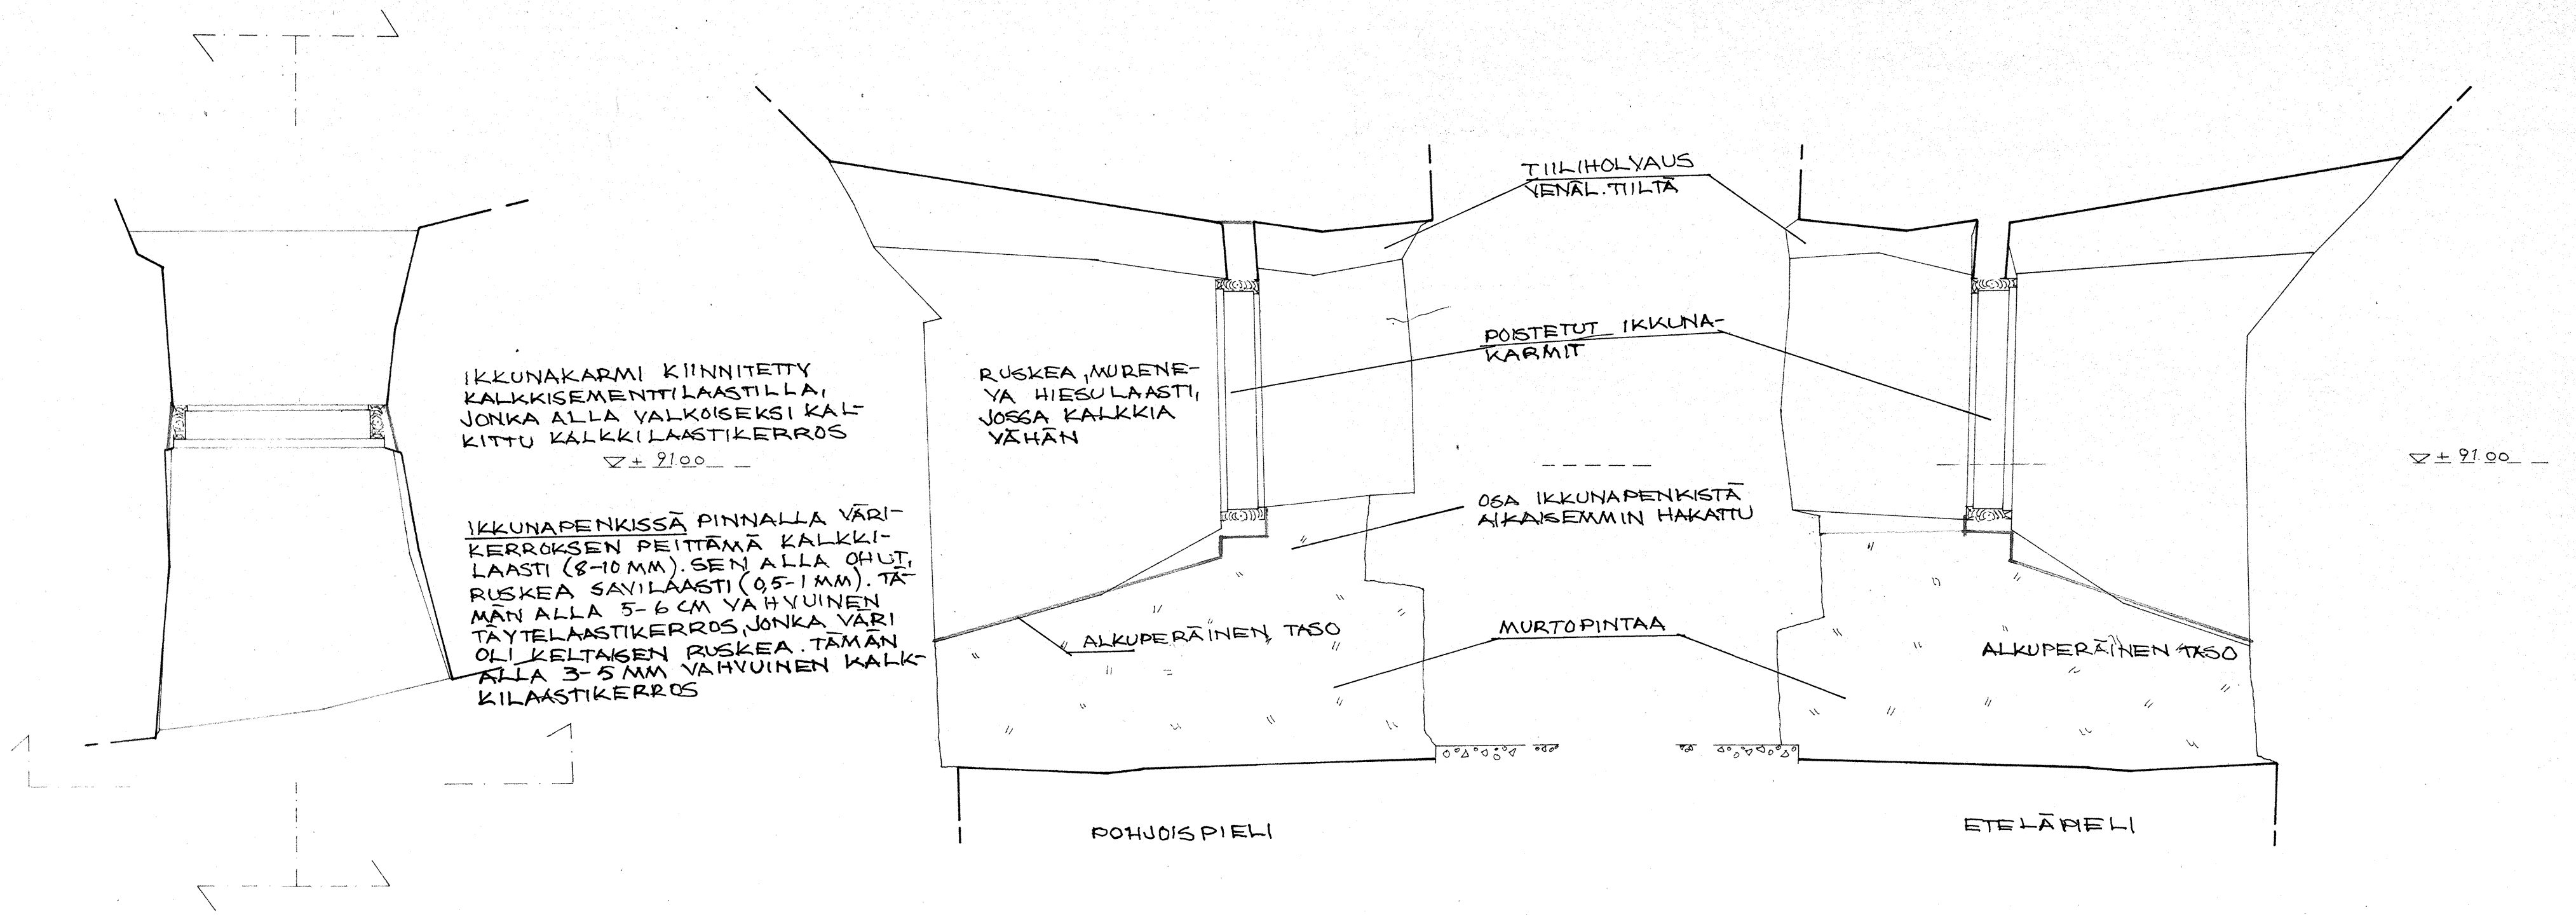 IKKUNAKARMI KIINNITETTY
KALKKISEMENTTILAASTILLA,
JONKA ALLA VALKOISEKSI KAL-
KITTU KALKKILAASTIKERROS
+ 91.00
IKKUNAPENKISSÄ PINNALLA VÄRI-
KERROKSEN PEITTÄMÄ KALKKI-
LAASTI (8-10 MM). SEN ALLA OHUT,
RUSKEA SAVILAASTI (0,5-1 MM). TÄ-
MÄN ALLA 5-6 CM VAHVUINEN
TÄYTELAASTIKERROS, JONKA VÄRI
OLI KELTAISEN RUSKEA. TÄMÄN
ALLA 3-5 MM VAHVUINEN KALK-
KILAASTIKERROS
RUSKEA, MURENE-
VA HIESULAASTI,
JOSSA KALKKIA
VÄHÄN
ALKUPERÄINEN TASO
POHJOISPIELI
TIILIHOLVAUS
VENÄL. TIILTÄ
POISTETUT IKKUNA-
KARMIT
OSA IKKUNAPENKISTÄ
AIKAISEMMIN HAKATTU
MURTOPINTAA
ALKUPERÄINEN TASO
ETELÄPIELI
+ 91.00